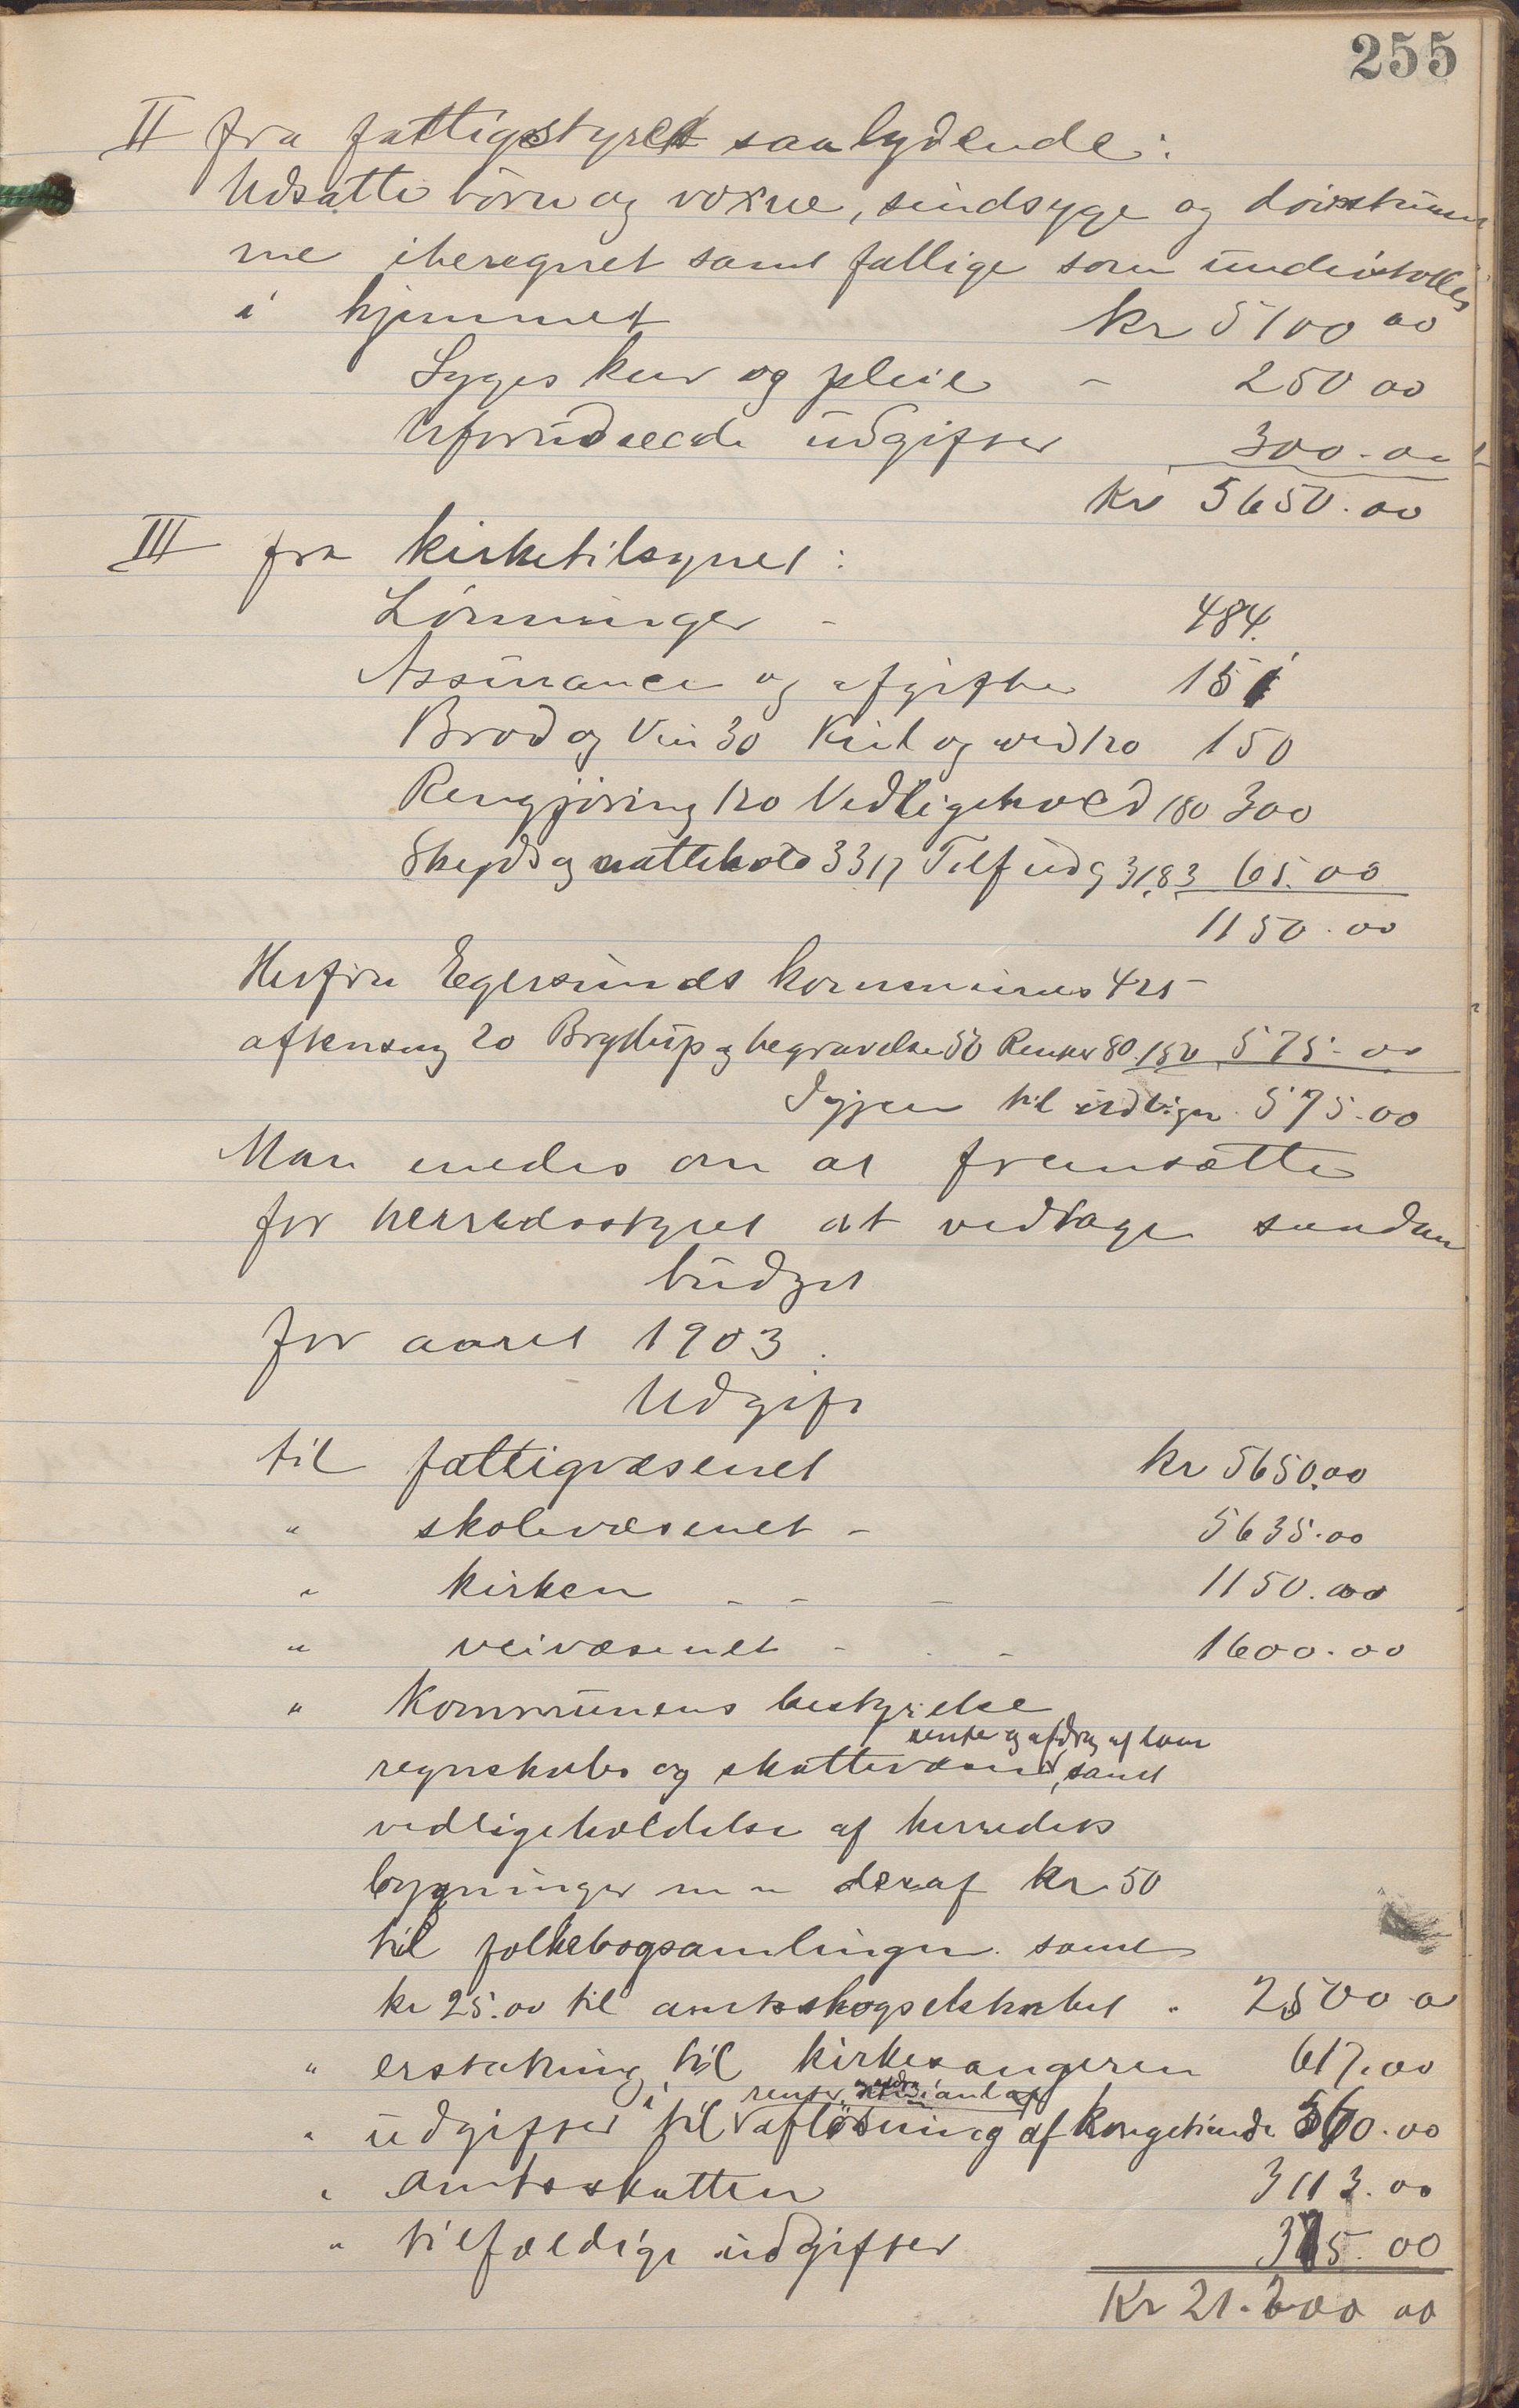 255
II fra fattigstyret saalydende:
Udsatte börn og voxne, sindsyge og dövstum
me iberegnet samt fattige som understöttes
i hjemmet kr 5100 00
Syges kur og pleie - 250 00
Uforudseede udgifter 300.00
Kr 5650.00
III fra kirketilsynet:
Lönninger - 484.
Assurance og afgifter 151
Bröd og Vin 30 Kul og ved 120 150
Rengjöring 120 Vedligehold 180 300
Skyds og nattehold 33 17 Tilf udg 31,83 65.00
1150.00
Herfra Egersunds kommunes 425 -
afkastning 20 Bryllup og begravelse 50 Renter 80 150 575.00
Igjen til udlign. 575.00
Man enedes om at fremsætte
for herredsstyret at vedtage saadan
budget
for aaret 1903.
Udgift
til fattigvæsenet kr 5650.00
" skolevæsenet - 5635.00
" kirken - - - 1150.00
" veivæsenet - - - 1600.00
" Kommunens bestyrelse
rente og afdrag af laan
regnskabs og skattevæsen, samt
vedligeholdelse af herredets
bygninger m m deraf kr 50
til folkebogsamlingen samt
kr 25.00 til amtsskogselskabet " 2500 00
" erstatning til kirkesangeren 617.00
renter
" udgifter til aflösning af Kongetiende 560.00
" amtsskatten 3113.00
" tilfældige udgifter 375.00
Kr 21.200 00